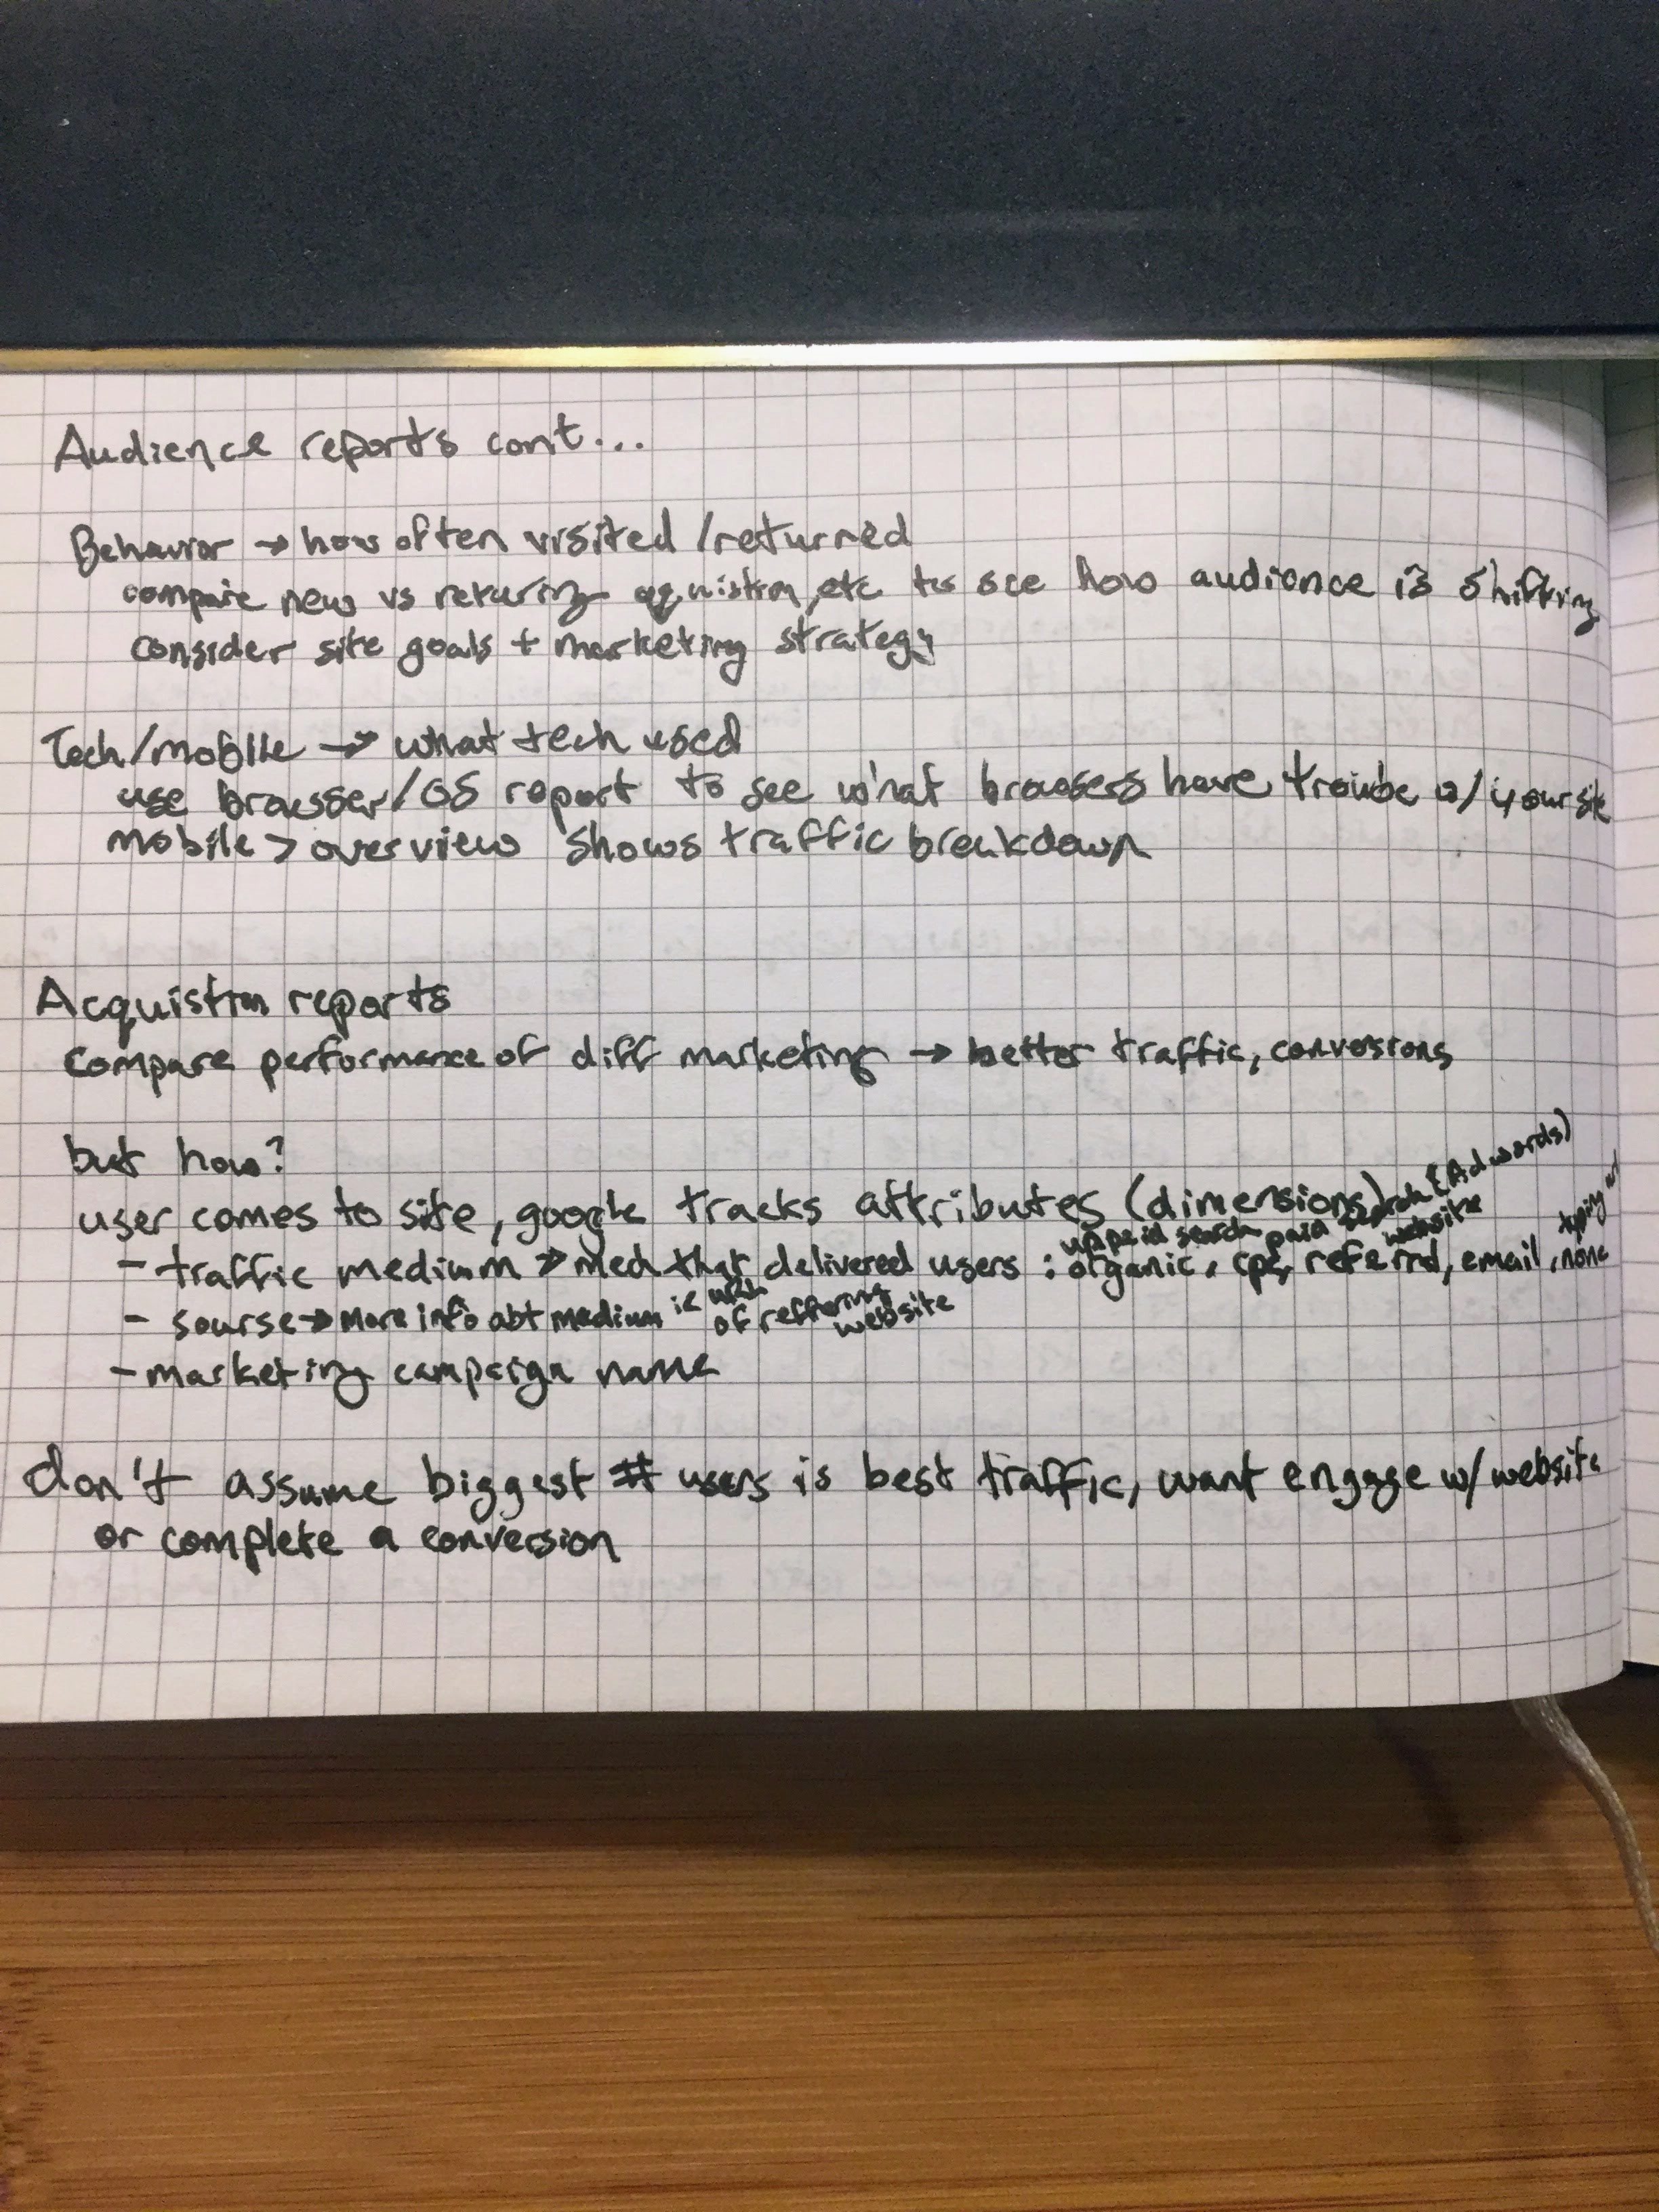 Audience reports cont...
Behavior → how often visited / returned
compare new vs returing aquistion, etc to see how audience is shifting
consider site goals + marketing strategy
Tech/mobile → what tech used
use browser/OS report to see what browsers have trouble w/ your site
mobile > overview shows traffic breakdown
Acquistion reports
compare performance of diff marketing → better traffic, conversions
but how?
user comes to site, google tracks attributes (dimensions)
unpaid search paid search (Adwords) website typing url
- traffic medium → med that delivered users : organic, cpc, referral, email, none
- sourse → more info abt medium ie
of reffering
website
- marketing campaign name
don't assume biggest # users is best traffic, want engage w/ website
or complete a conversion